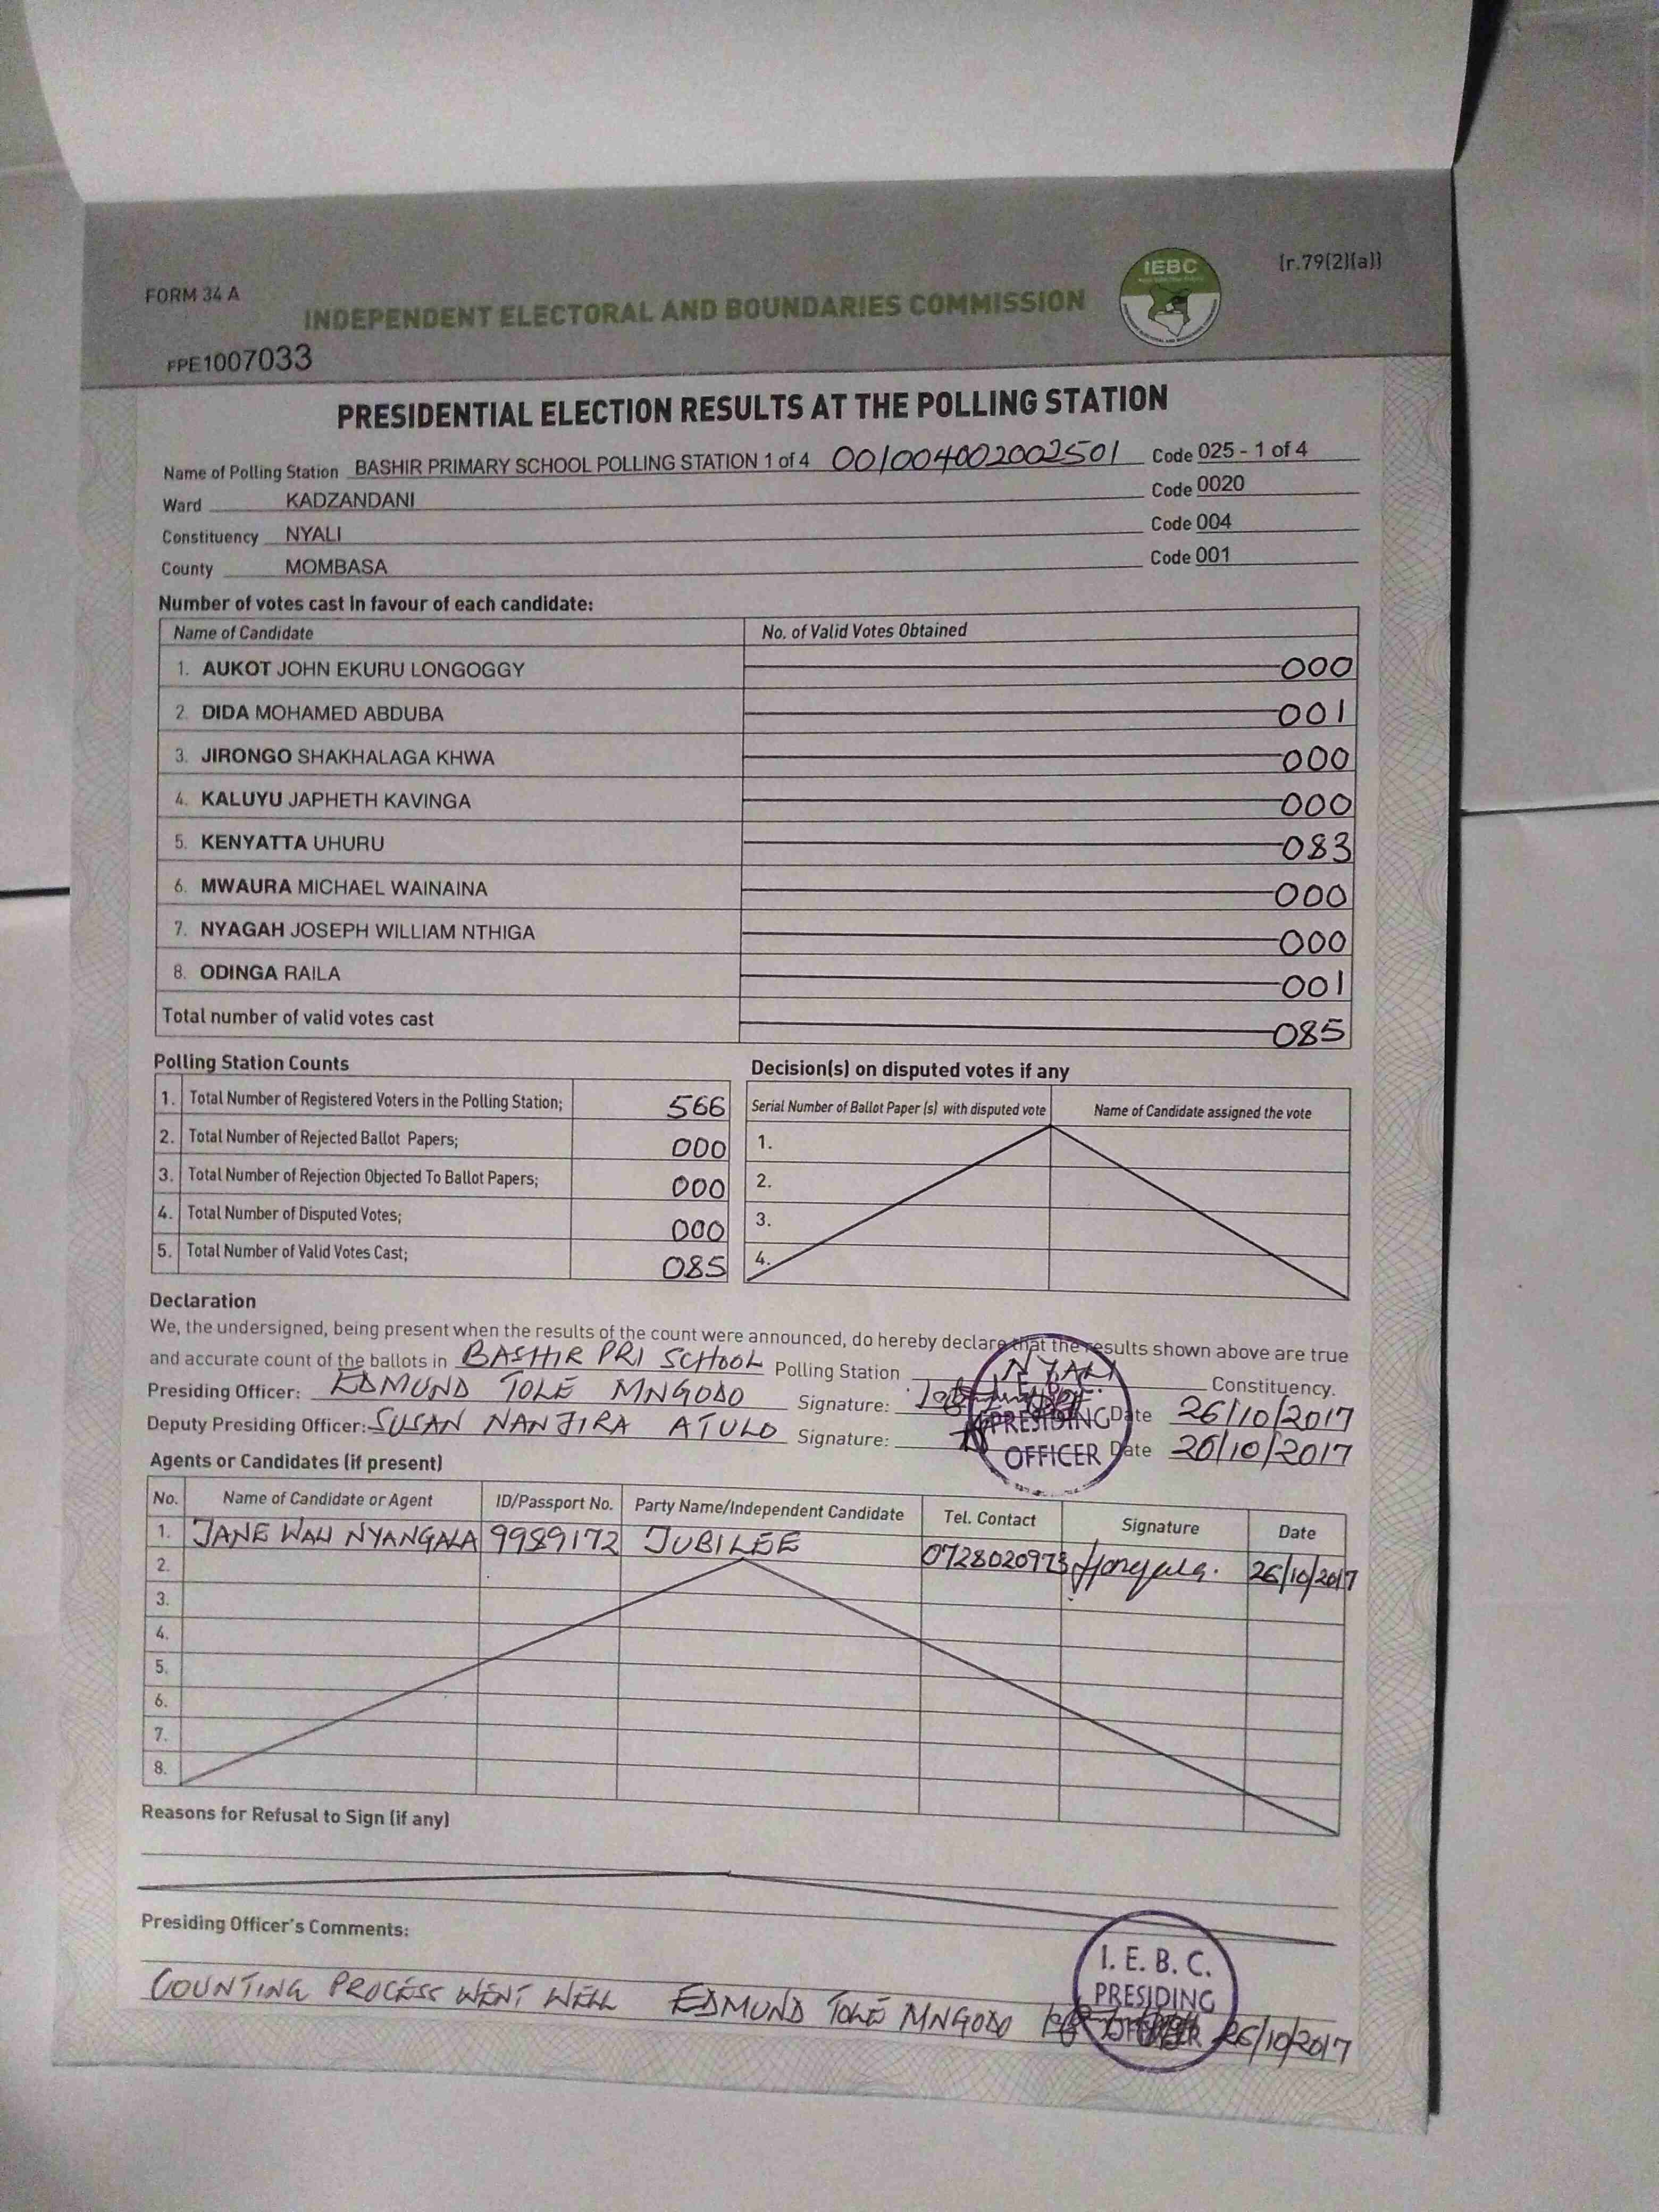 FORM 34 A
[r.79(2)(a)]
IEBC
INDEPENDENT ELECTORAL AND BOUNDARIES COMMISSION
FPE1007033
PRESIDENTIAL ELECTION RESULTS AT THE POLLING STATION
Name of Polling Station BASHIR PRIMARY SCHOOL POLLING STATION 1 of 4 001004002002501 Code 025 - 1 of 4
Ward KADZANDANI Code 0020
Constituency NYALI Code 004
County MOMBASA Code 001
Number of votes cast in favour of each candidate:
Name of Candidate No. of Valid Votes Obtained
1. AUKOT JOHN EKURU LONGOGGY 000
2. DIDA MOHAMED ABDUBA 001
3. JIRONGO SHAKHALAGA KHWA 000
4. KALUYU JAPHETH KAVINGA 000
5. KENYATTA UHURU 083
6. MWAURA MICHAEL WAINAINA 000
7. NYAGAH JOSEPH WILLIAM NTHIGA 000
8. ODINGA RAILA 001
Total number of valid votes cast 085
Polling Station Counts
1. Total Number of Registered Voters in the Polling Station; 566
2. Total Number of Rejected Ballot Papers; 000
3. Total Number of Rejection Objected To Ballot Papers; 000
4. Total Number of Disputed Votes; 000
5. Total Number of Valid Votes Cast; 085
Decision(s) on disputed votes if any
Serial Number of Ballot Paper (s) with disputed vote Name of Candidate assigned the vote
1.
2.
3.
4.
Declaration
We, the undersigned, being present when the results of the count were announced, do hereby declare that the results shown above are true
and accurate count of the ballots in BASHIR PRI SCHOOL Polling Station NYALI Constituency.
Presiding Officer: EDMUND TOLE MNGODO Signature: Date 26/10/2017
Deputy Presiding Officer: SUSAN NANJIRA ATULO Signature: Date 26/10/2017
PRESIDING
OFFICER
Agents or Candidates (if present)
No. Name of Candidate or Agent ID/Passport No. Party Name/Independent Candidate Tel. Contact Signature Date
1. JANE WALI NYANGALA 9989172 JUBILEE 0728020973 26/10/2017
2.
3.
4.
5.
6.
7.
8.
Reasons for Refusal to Sign (if any)
Presiding Officer's Comments:
COUNTING PROCESS WENT WELL EDMUND TOLE MNGODO 26/10/2017
I. E. B. C.
PRESIDING
OFFICER